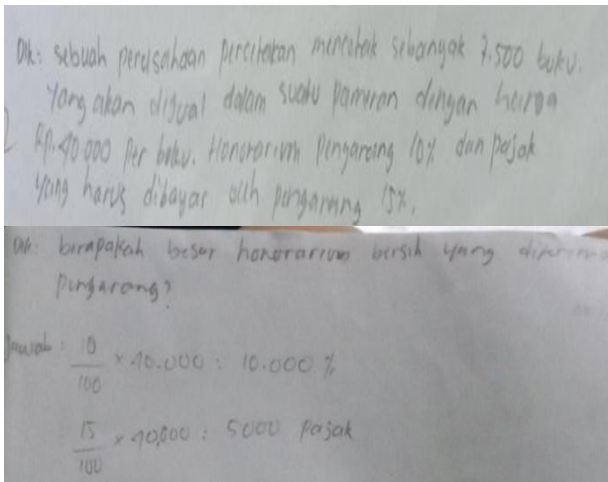 Dik: sebuah perusahaan percetakan mencetak sebanyak 7.500 buku.
yang akan dijual dalam suatu pameran dengan harga
Rp. 40.000 per buku. Honorarium pengarang 10% dan pajak
yang harus dibayar oleh pengarang 15%.
Dit: berapakah besar honorarium bersih yang diterima
pengarang?
Jawab: 10/100 × 40.000 : 10.000 %
15/100 × 40,000 : 5000 pajak